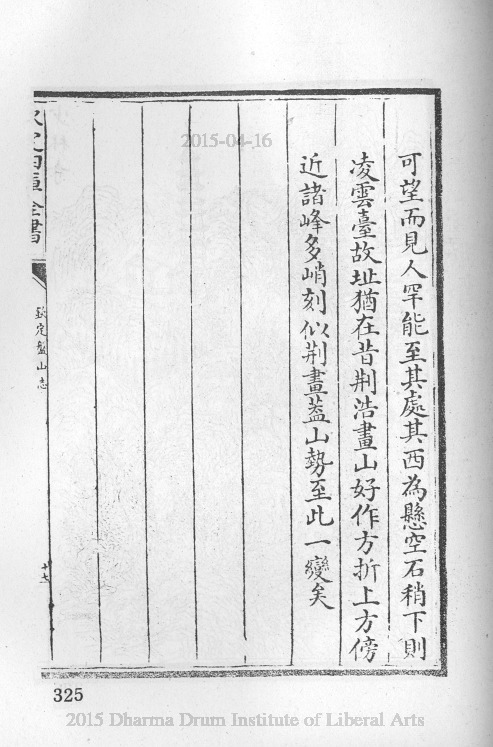 2015-04-16
可望而見人罕能至其處其西為懸空石稍下則
凌雲臺故址猶在昔荆浩畫山好作方折上方傍
近諸峰多峭刻似荆畫葢山勢至此一變矣
欽定四庫全書
欽定盤山志
十七
325
2015 Dharma Drum Institute of Liberal Arts